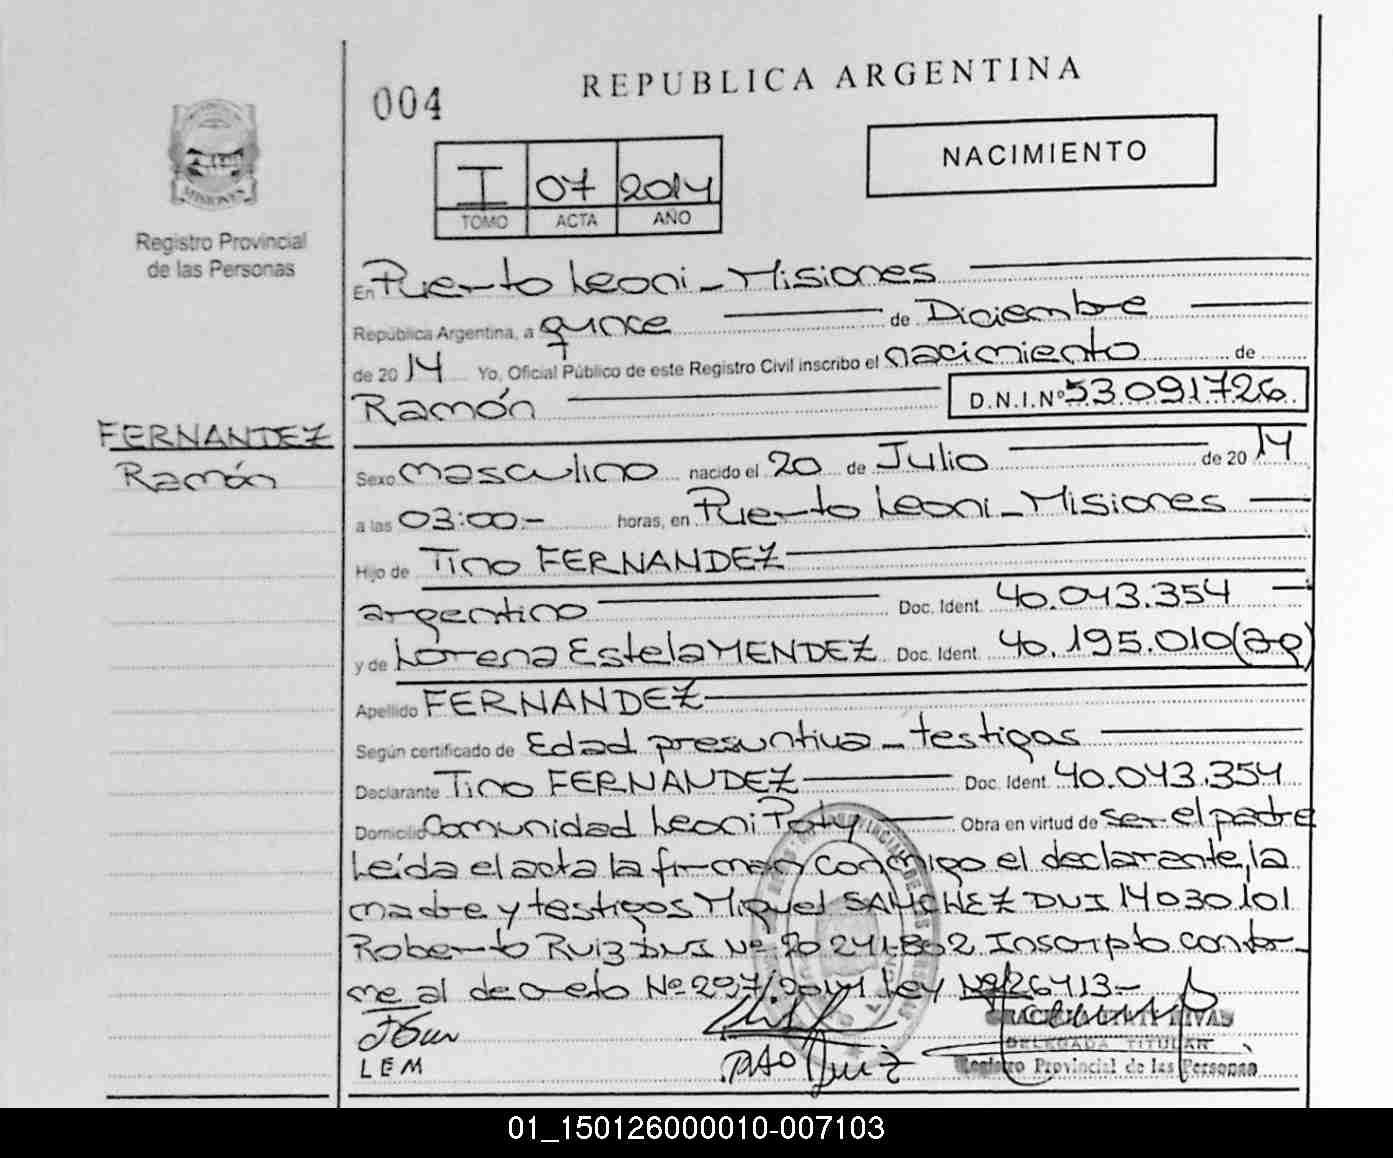 REPUBLICA ARGENTINA
004
NACIMIENTO
I 07 2014
TOMO ACTA AÑO
MISIONES
Registro Provincial
de las Personas
En Puerto Leoni - Misiones
República Argentina, a quince de Diciembre
de 2014 Yo, Oficial Público de este Registro Civil inscribo el nacimiento de
Ramón D.N.I.Nº 53.091.726
FERNANDEZ
Ramón
Sexo masculino nacido el 20 de Julio de 2014
a las 03:00- horas, en Puerto Leoni - Misiones
Hijo de Tino FERNANDEZ
argentino Doc. Ident. 40.043.354
y de Lorena Estela MENDEZ Doc. Ident. 40.195.010 (ag)
Apellido FERNANDEZ
Según certificado de Edad presuntiva - testigos
Declarante Tino FERNANDEZ Doc. Ident. 40.043.354
Domicilio Comunidad Leoni Poty Obra en virtud de ser el padre
Leída el acta la firman conmigo el declarante, la
madre y testigos Miguel SANCHEZ DNI 14030101
Roberto Ruiz DNI Nº 20 241.802 Inscripto confor-
me al decreto Nº 297/2014 Ley Nº 26413-
LEM
DELEGADA TITULAR
Registro Provincial de las Personas
01_150126000010-007103